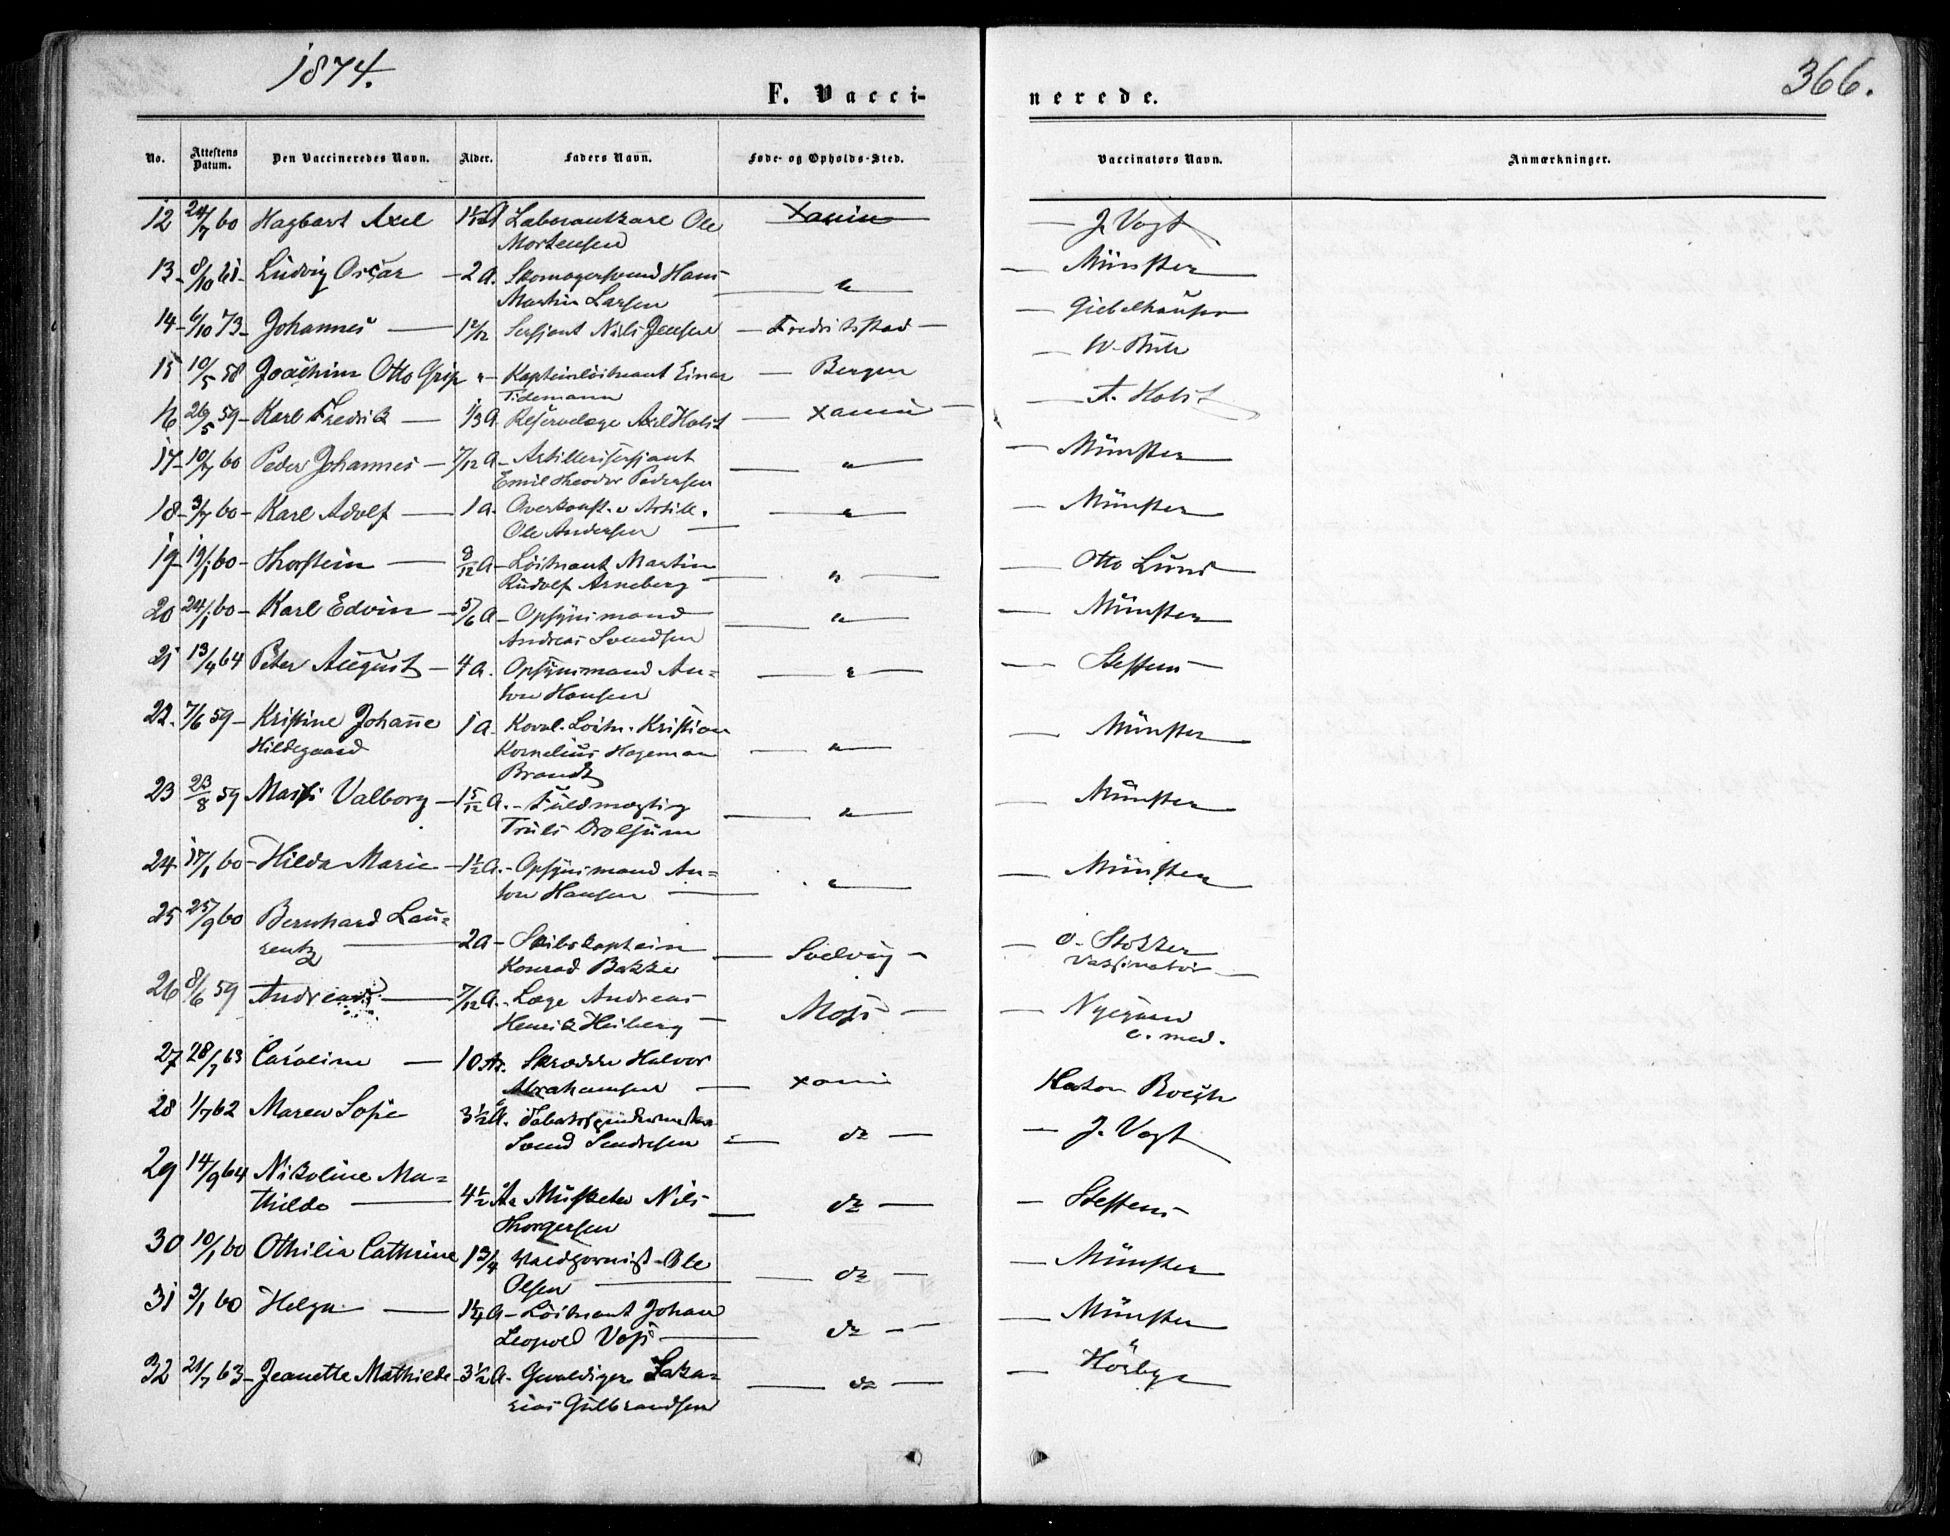 1874.
F. Vacci-
nerede.
366.
No. Attestens Datum. Den Vaccineredes Navn. Alder. Faders Navn. Føde- og Opholds-Sted. Vaccinators Navn. Anmærkninger.
12 24/7 60 Hagbart Axel Ole Xania — J. Vogt
Mortensen
13 - 8/10 61 - Ludvig Oscar — 2 A. Skomagersvend Hans — " — Münster
Martin Larsen
14 - 6/10 73 - Johannes — Sersjant Nils Jensen — Fredrikstad —
15 10/5 58 Joachim Otto Grip " - Kapteinløitnant Einar — Bergen
Tidemann
16 26/5 59 - Karl Fredrik — 1/3 A. Reservelæge Axel Holst — Xania — — A. Holst
17 - 10/7 60 Peder Johannes — 7/12 A - Artillerisersjant — " — Münster
Emil Theodor Pedersen
18 - 3/7 60 - Karl Adolf — 1 A. Overkonst. v Artill. — " — Münster
Ole Andersen —
19 - 19/1 60 - Thorstein — 8/12 A - Löitnant Martin — " — Otto Lund
Rudolf Arneberg
20 24/1 60 - Karl Edvin — 5/6 A - Opsynsmand — " — Münster
Andreas Svendsen
21 13/4 64 Peter August — 4 A. Opsynsmand An= — " — Steffens —
ton Hansen
22. 7/6 59 - Kristine Johanne 1 A. Kaval. Loitn. Kristian — " — Münster
Hildegaard Kornelius Hageman
Brandt
23 23/8 59 Valborg — 1 5/12 A. - Fuldmægtig — " — Münster
Truls Drolsum
24 17/1 60 - Hilda Marie — 1½ A. - Opsynsmand An= — " — Münster
ton Hansen —
25 25/9 60 Bernhard Lau=
rentz — 2 A - Skibskaptein — Svelvig — — O. Stokker
Konrad Bakke
26 8/6 59 Andreas — 7/12 A. - Læge Andreas — Moss — — Nygaard
Henrik Heiberg — c. med.
27 28/7 63 Caroline — 10 Ar. Skrædder Halvor
Abrahamsen — Xania
28 1/7 62 Maren Sofie 3½ A. — do — — J. Vogt
Svend
29 14/9 64 Nikoline Ma=
thilde — 4½ A. Musketer Nils — do — — Steffens
Thorgersen
30 10/1 60 Othilia Cathrine 1 3/4 Valdhornist Ole — do — — Münster
Olsen —
31 3/1 60 Helga — 1 1/4 A - Löitnant Johan — do — — Münster
Leopold Voss —
32 21/7 63 - Jeanette Mathilde - 3½ A - Gevaldiger Saka= — do — — Hörbye
rias Gulbrandsen